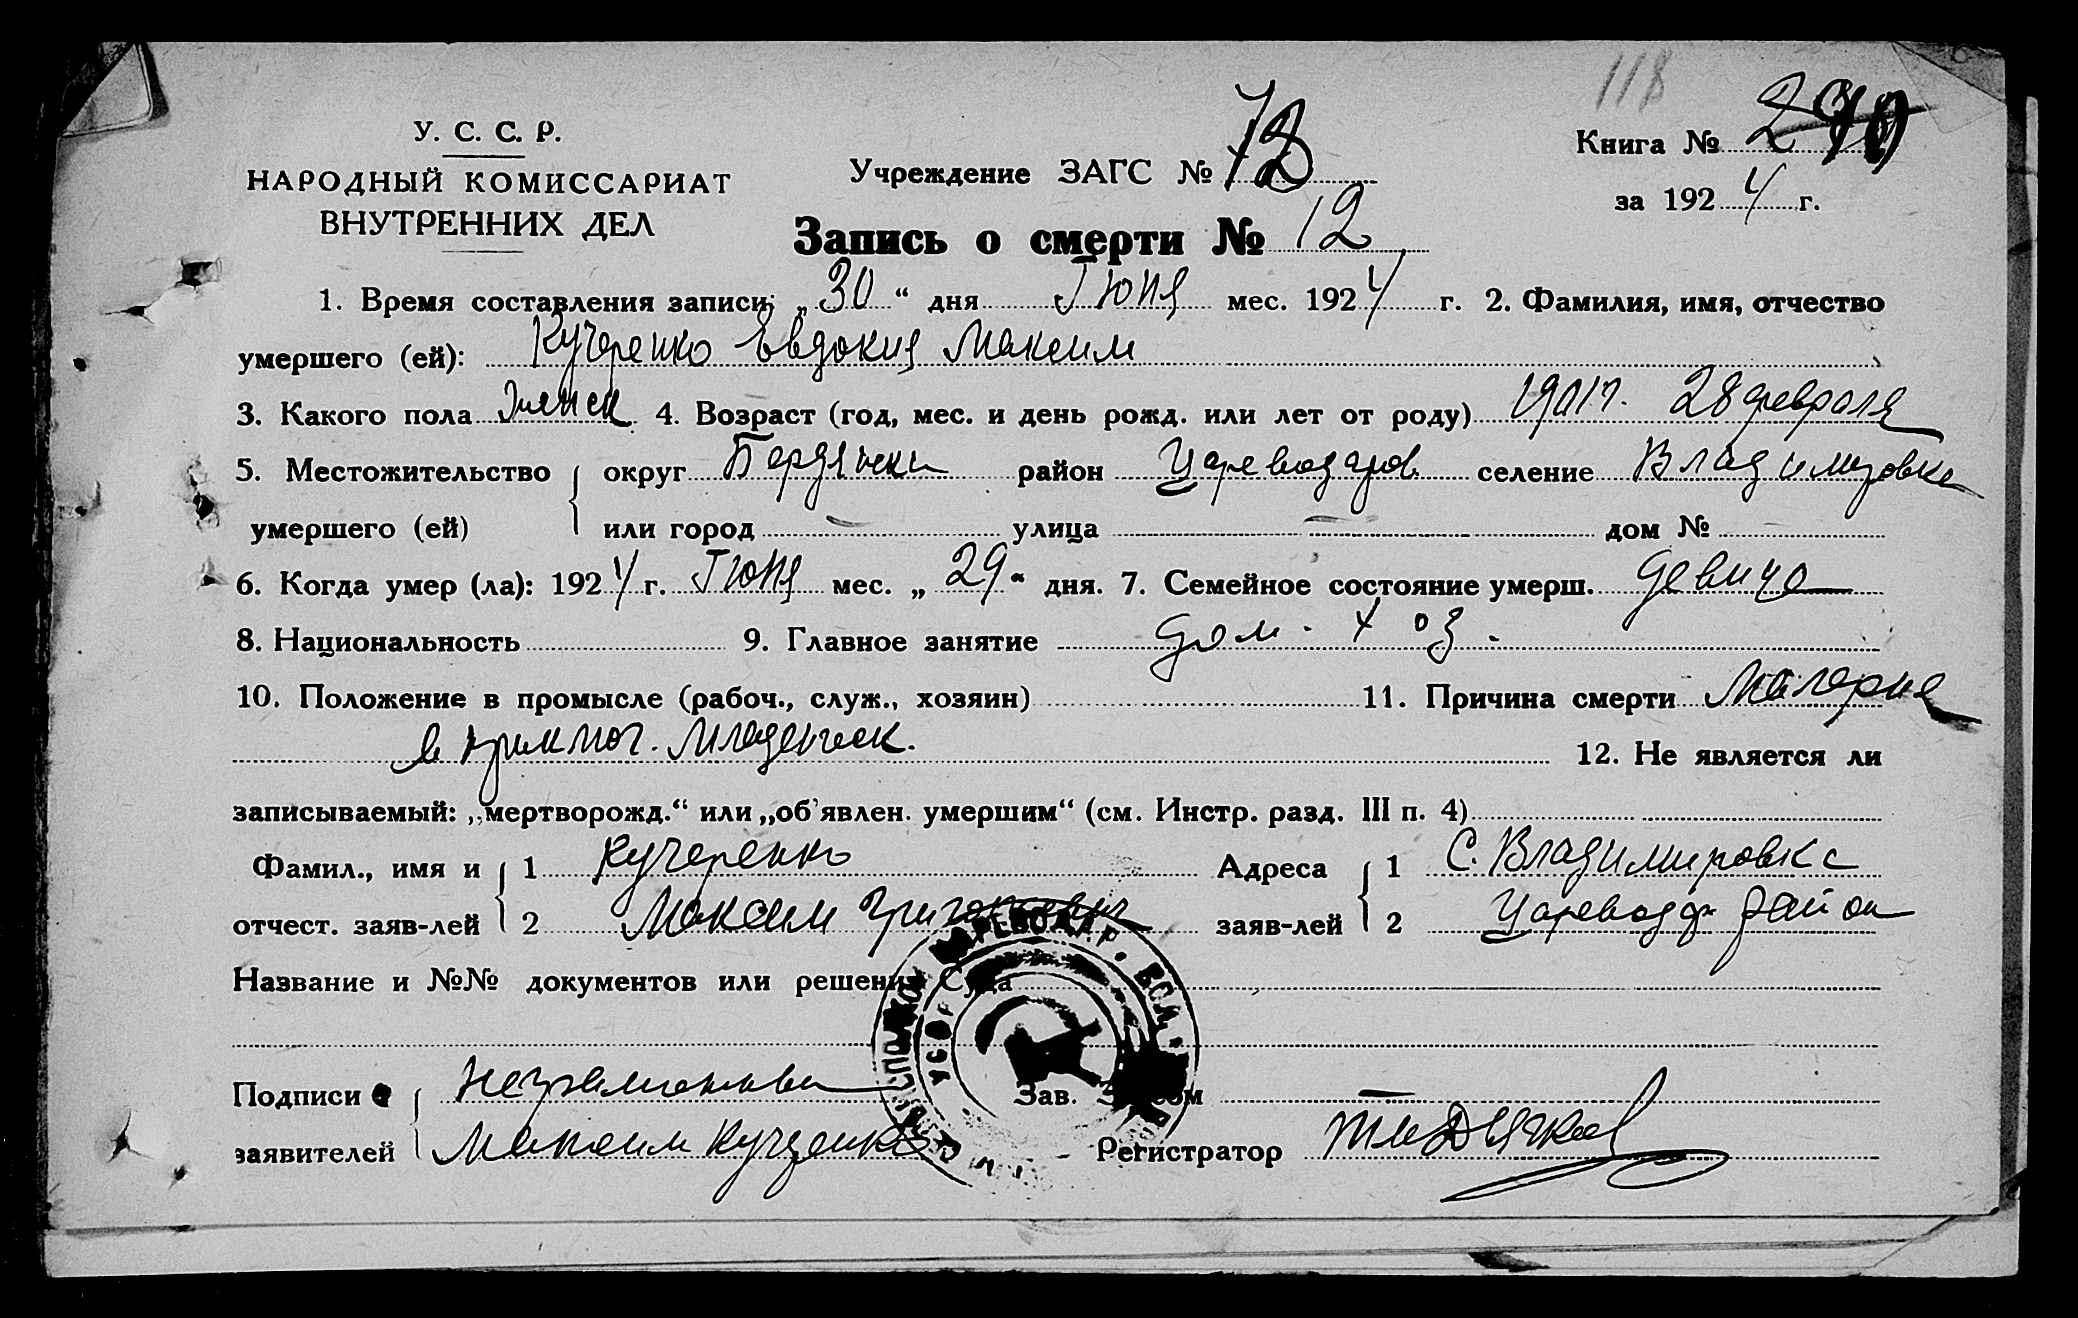 118
У. С. С. Р.
НАРОДНЫЙ КОМИССАРИАТ
ВНУТРЕННИХ ДЕЛ
Учреждение ЗАГС №
Книга №
за 1924 г.
Запись о смерти № 12
1. Время составления записи: „30“ дня Июня мес. 1924 г. 2. Фамилия, имя, отчество
умершего (ей): Кучеренко Евдокия Максим
3. Какого пола женск 4. Возраст (год, мес. и день рожд. или лет от роду) 28 февраля
5. Местожительство округ Бердянски район Цареводаров селение Владимировка
умершего (ей) или город — улица — дом №
6. Когда умер (ла): 1924 г. Июня мес. „29“ дня. 7. Семейное состояние умерш. девица
8. Национальность 9. Главное занятие дом. хоз.
10. Положение в промысле (рабоч., служ., хозяин) 11. Причина смерти Малярия
12. Не является ли
записываемый: „мертворожд.“ или „об'явлен. умершим“ (см. Инстр. разд. III п. 4)
Фамил., имя и 1 Кучеренко Адреса 1 С. Владимировка
отчест. заяв-лей 2 Максим Григорьевич заяв-лей 2 Цареводар район
Название и №№ документов или решения Суда
Подписи Неграмотный Зав. Загсом
заявителей Максим Кучеренко Регистратор